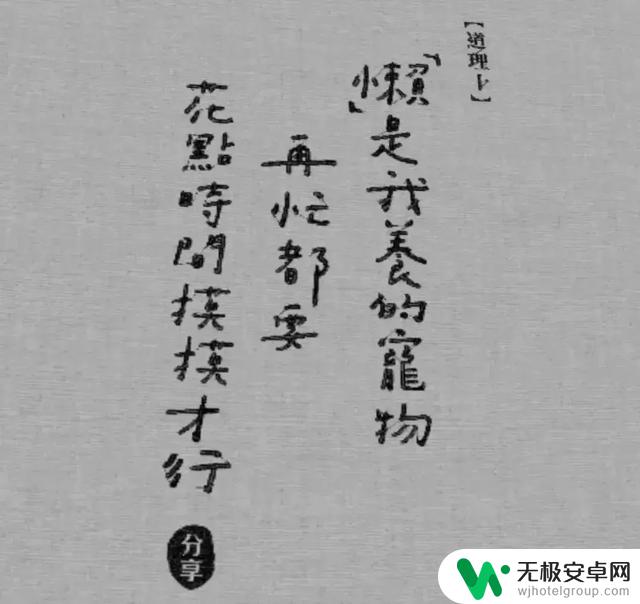 【道理卜】
「懶」是我養的寵物
再忙都要
花點時間摸摸才行
分享
无极安卓网
wjhotelgroup.com